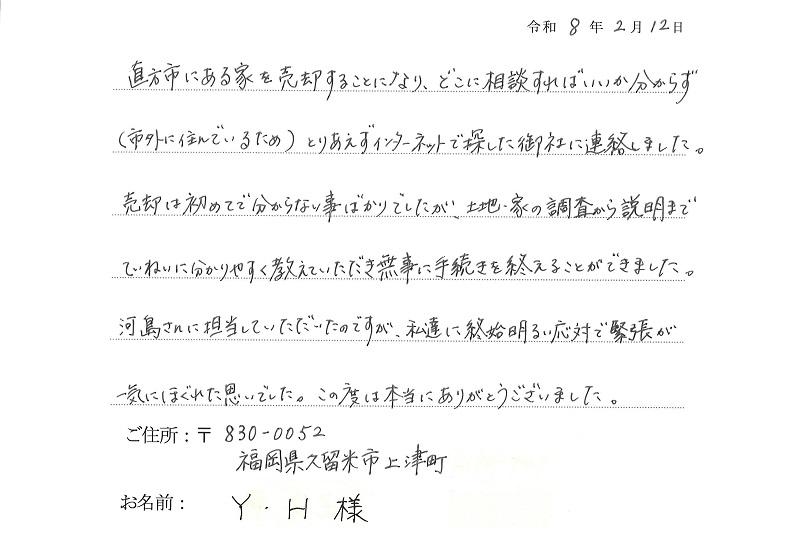 令和 8 年 2 月 12 日
直方市にある家を売却することになり、どこに相談すればいいか分からず
(市外に住んでいるため)とりあえずインターネットで探した御社に連絡しました。
売却は初めてで分からない事ばかりでしたが、土地・家の調査から説明まで
ていねいに分かりやすく教えていただき無事に手続きを終えることができました。
河島さんに担当していただいたのですが、私達に終始明るい応対で緊張が
一気にほぐれた思いでした。この度は本当にありがとうございました。
ご住所:〒 830-0052
福岡県久留米市上津町
お名前: Y・H 様